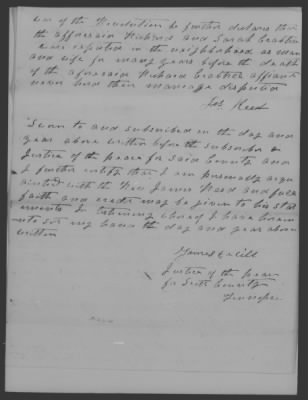 of the Revolution he further declares that
the afforesaid Richard and Sarah Crabtree
were reported in the neighborhood as man
and wife for many years before the death
of the aforesaid Richard Crabtree affiants
never heard their marriage disputed
Jas. Reed
Sworn to and subscribed in the day and
year above written before the subscriber a
Justice of the peace for Said County and
I further certify that I am personally acqu
ainted with the Rev James Reed and full
faith and credit may be given to his stat
ements In testimony whereof I have hereun
to set my hand the day and year above
written
James
Justice of the peace
for Scott County
Tennessee